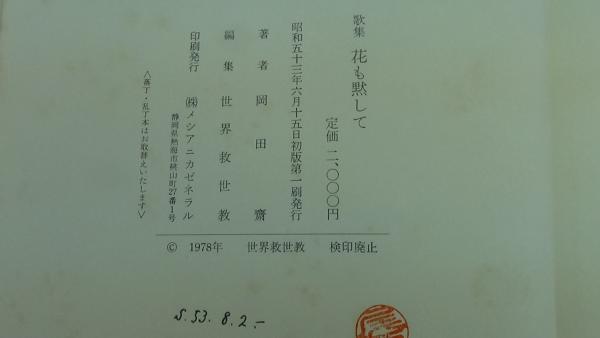 歌集 花も黙して
定価 二、〇〇〇円
昭和五十三年六月十五日初版第一刷発行
著者 岡田 齋
編集 世界救世教
印刷発行 ㈱メシアニカゼネラル
静岡県熱海市桃山町27番1号
〈落丁・乱丁本はお取替えいたします〉
© 1978年 世界救世教 検印廃止
S.53.8.2.-